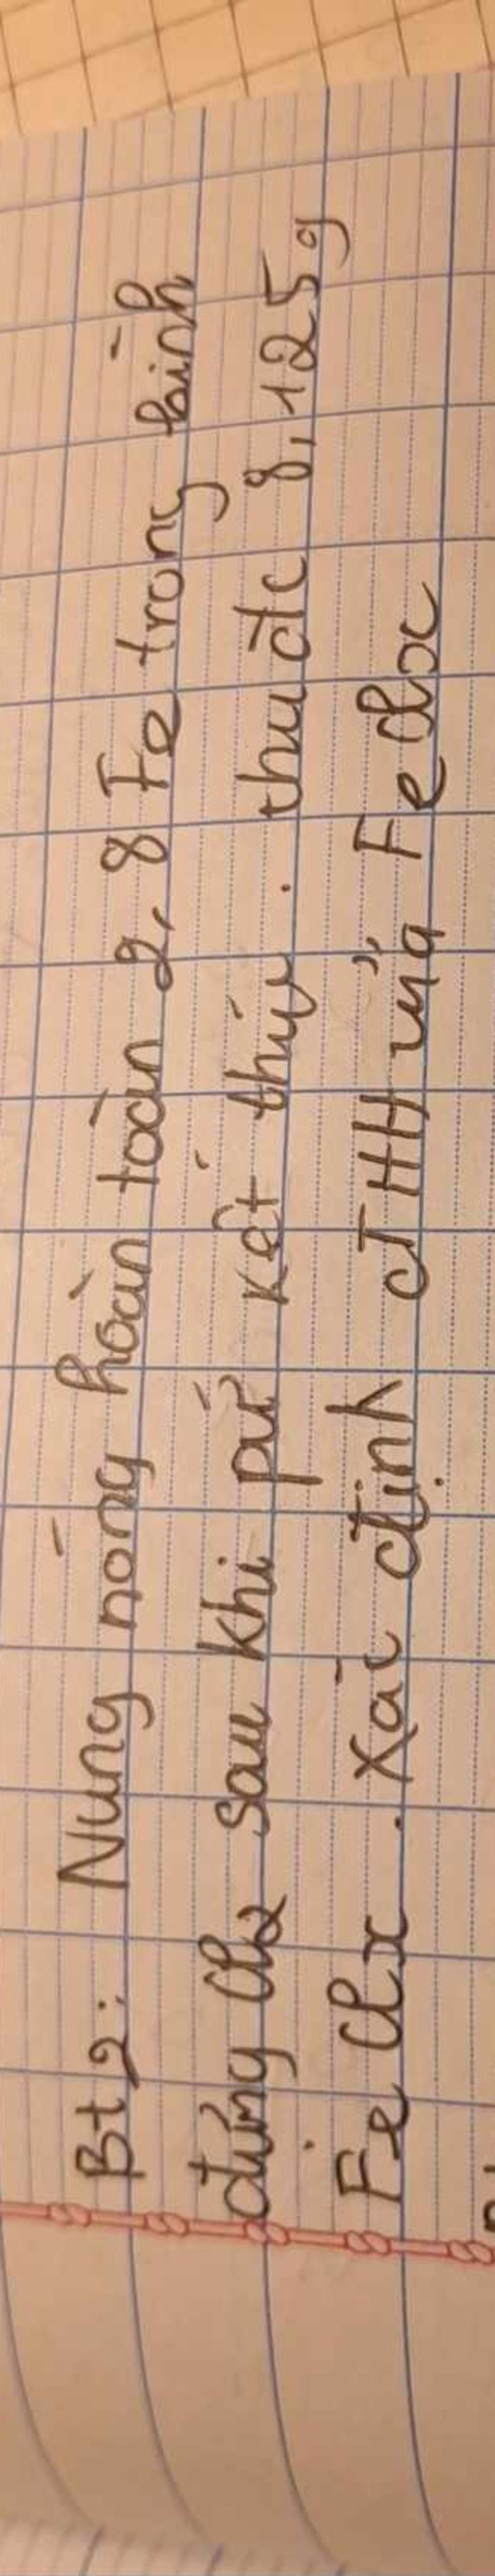 Bt2: Nung nóng hoàn toàn 2,8 Fe trong bình
đựng Cl2 sau khi pứ kết thúc. thu đc 8,125g
FeClx. Xác định CTHH của FeClx